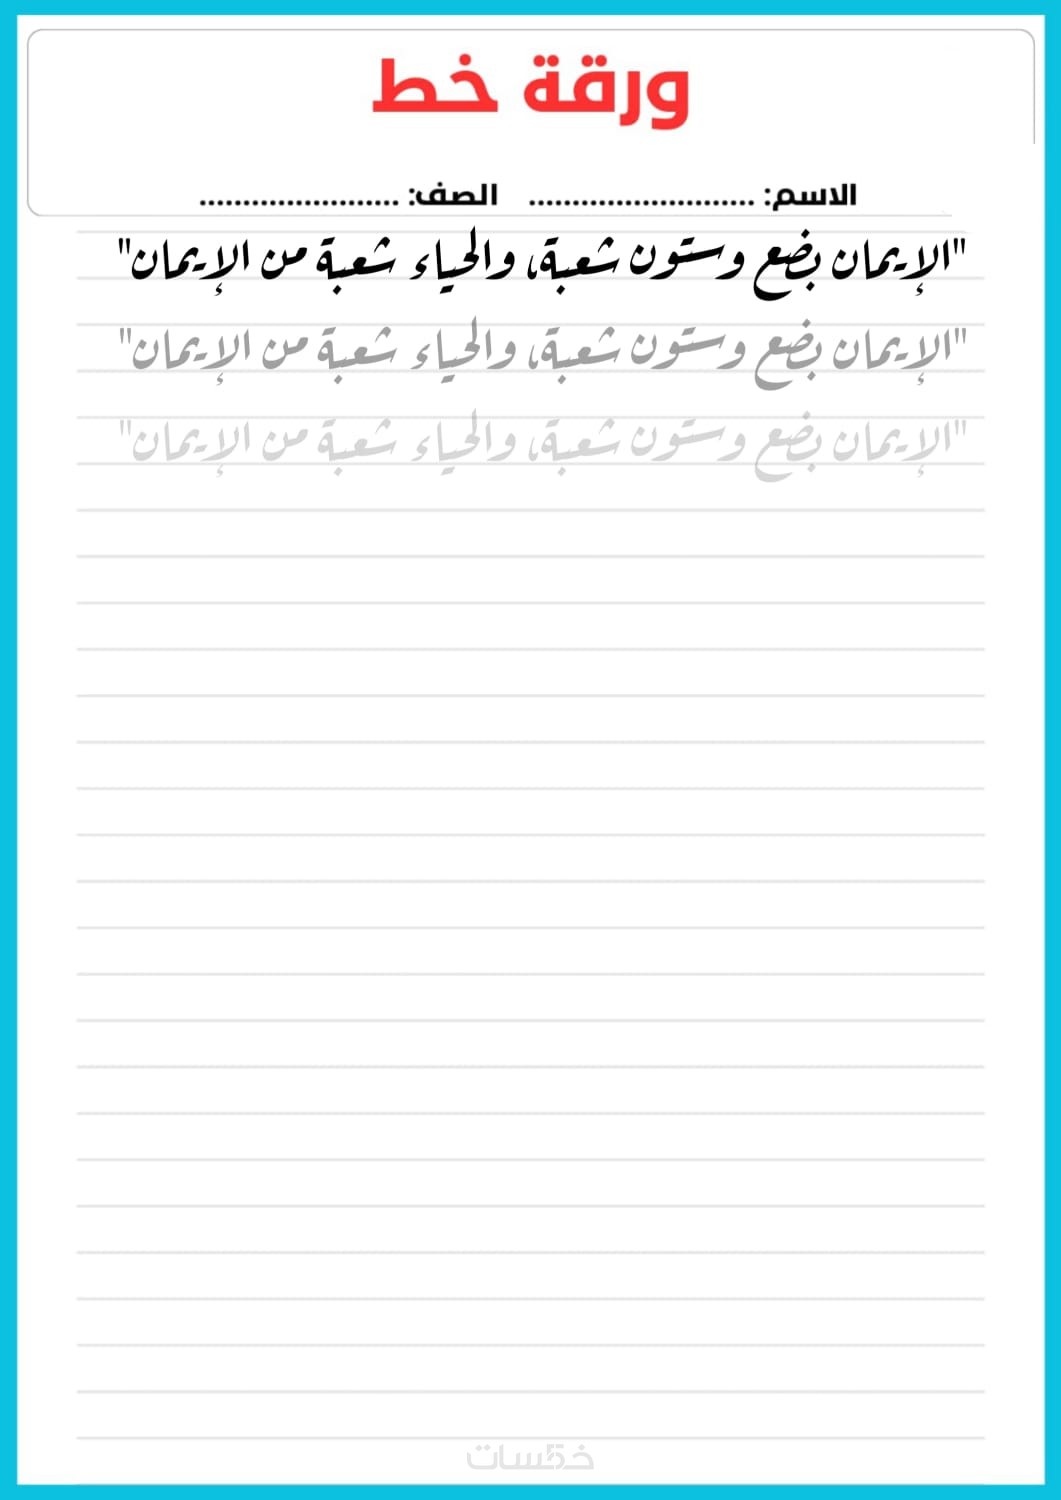 ورقة خط
الاسم: .......................... الصف: .......................
"الإيمان بضع وستون شعبة، والحياء شعبة من الإيمان"
"الإيمان بضع وستون شعبة، والحياء شعبة من الإيمان"
"الإيمان بضع وستون شعبة، والحياء شعبة من الإيمان"
خمسات